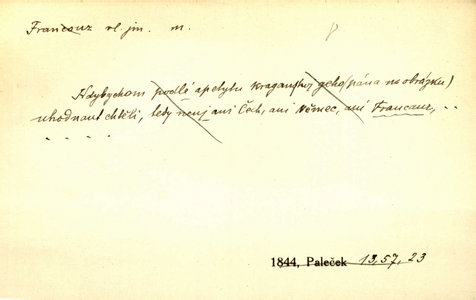 Francouz vl. jm. m.
Kdybychom podlé apetytu kraganskej geho (pána na obrázku)
uhodnaut chtěli, tedy nenj ani Čech, ani Němec, ani Francauz, ..
. . . . .
1844, Paleček 13, 57, 23